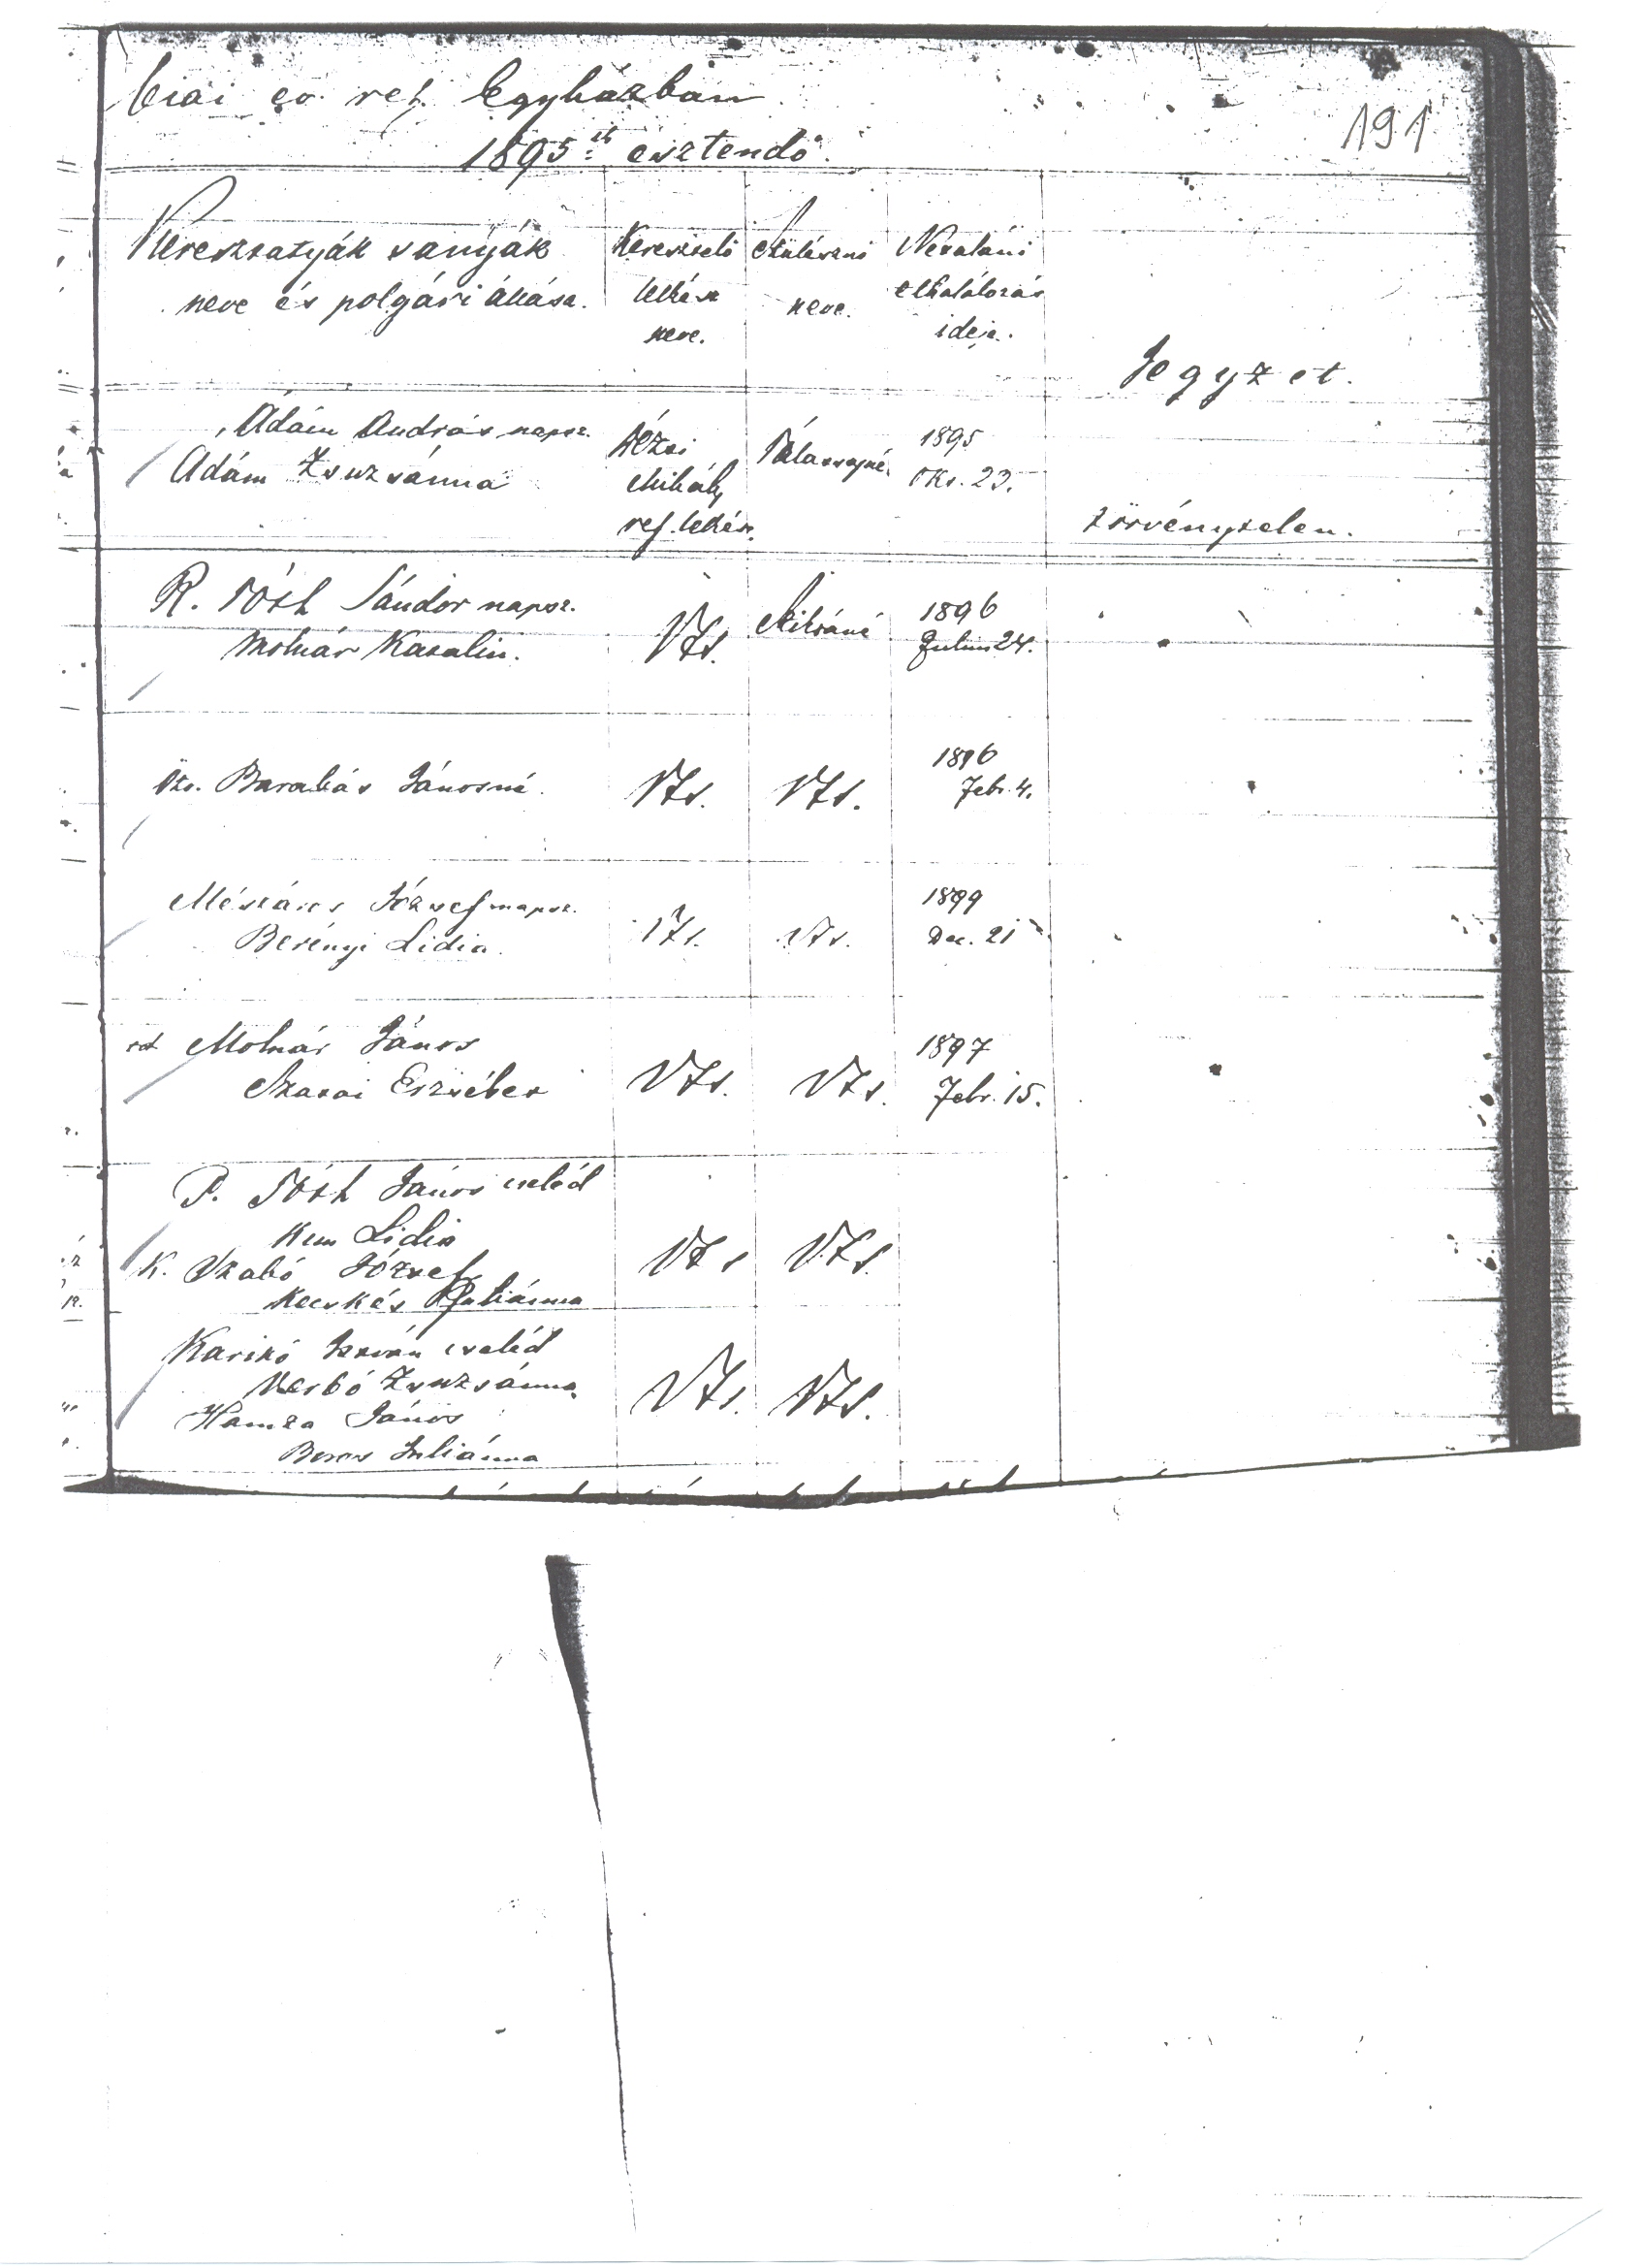 biai ev. ref. Egyházban
191
1895ik esztendő.
Keresztatyák s anyák
neve és polgári állása.
Keresztelő
lelkész
neve.
Szülésznő
neve.
Netaláni
elhalálozás
ideje.
Jegyzet.
Ádám András napsz.
Ádám Zsuzsánna
Mihály
ref. lelkész.
1895
Okt. 23.
törvénytelen.
R. Tóth Sándor napsz.
Molnár Katalin.
Vts.
1896
Julius 24.
Özv. Barabás Jánosné.
Vts.
Vts.
1896
Febr. 4.
Mészáros József napsz.
Berényi Lidia.
Vts.
Vts.
1899
Dec. 21
Molnár János
Szatai Erzsébet
Vts.
Vts.
1897
Febr. 15.
P. Tóth János cseléd
Kun Lidia
K. Szabó József
Kecskés Juliánna
Vts
Vts.
Karikó István cseléd
Zsuzsánna
Hamza János
Juliánna
Vts.
Vts.